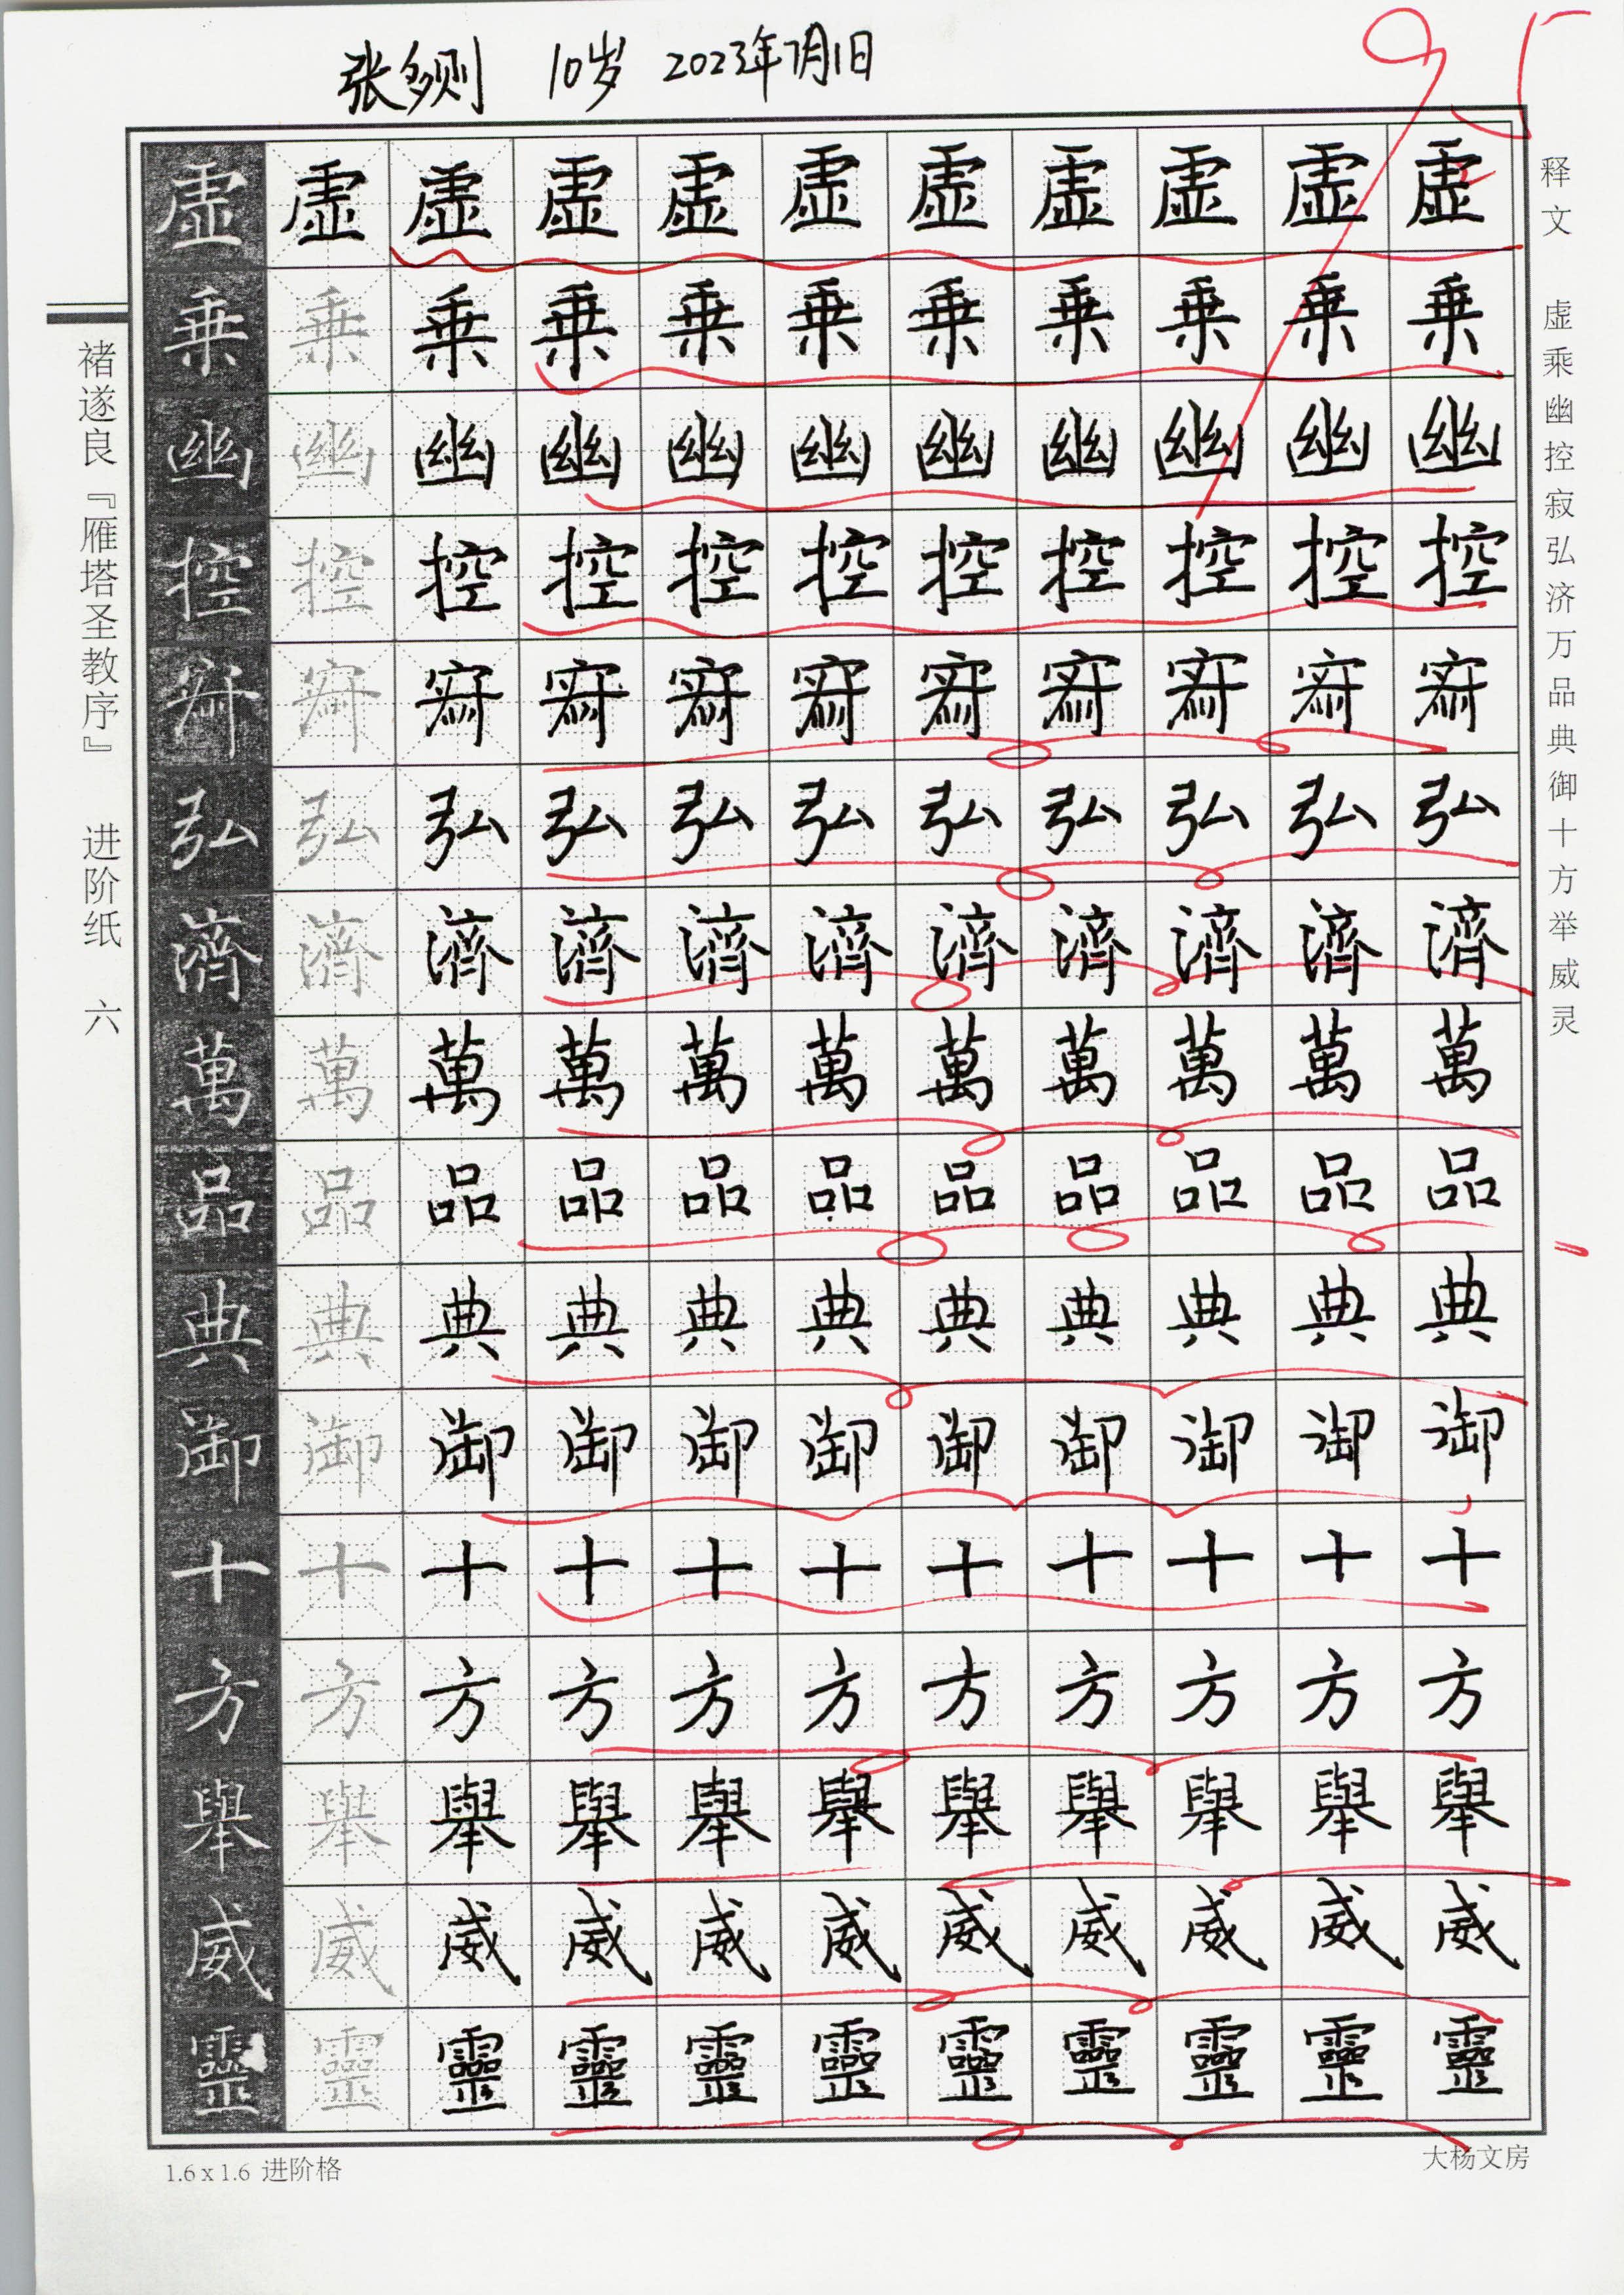 张多则 10岁 2023年7月1日
95
虚虚虚虚虚虚虚虚虚虚虚
乗乗乗乗乗乗乗乗乗乗乗
幽幽幽幽幽幽幽幽幽幽幽
控控控控控控控控控控控
弘弘弘弘弘弘弘弘弘弘弘
濟濟濟濟濟濟濟濟濟濟濟
萬萬萬萬萬萬萬萬萬萬萬
品品品品品品品品品品品
典典典典典典典典典典典
御御御御御御御御御御御
十十十十十十十十十十十
方方方方方方方方方方方
舉舉舉舉舉舉舉舉舉舉舉
威威威威威威威威威威威
靈靈靈靈靈靈靈靈靈靈靈
释文 虚乘幽控寂弘济万品典御十方举威灵
褚遂良『雁塔圣教序』 进阶纸 六
1.6 x 1.6 进阶格
大杨文房